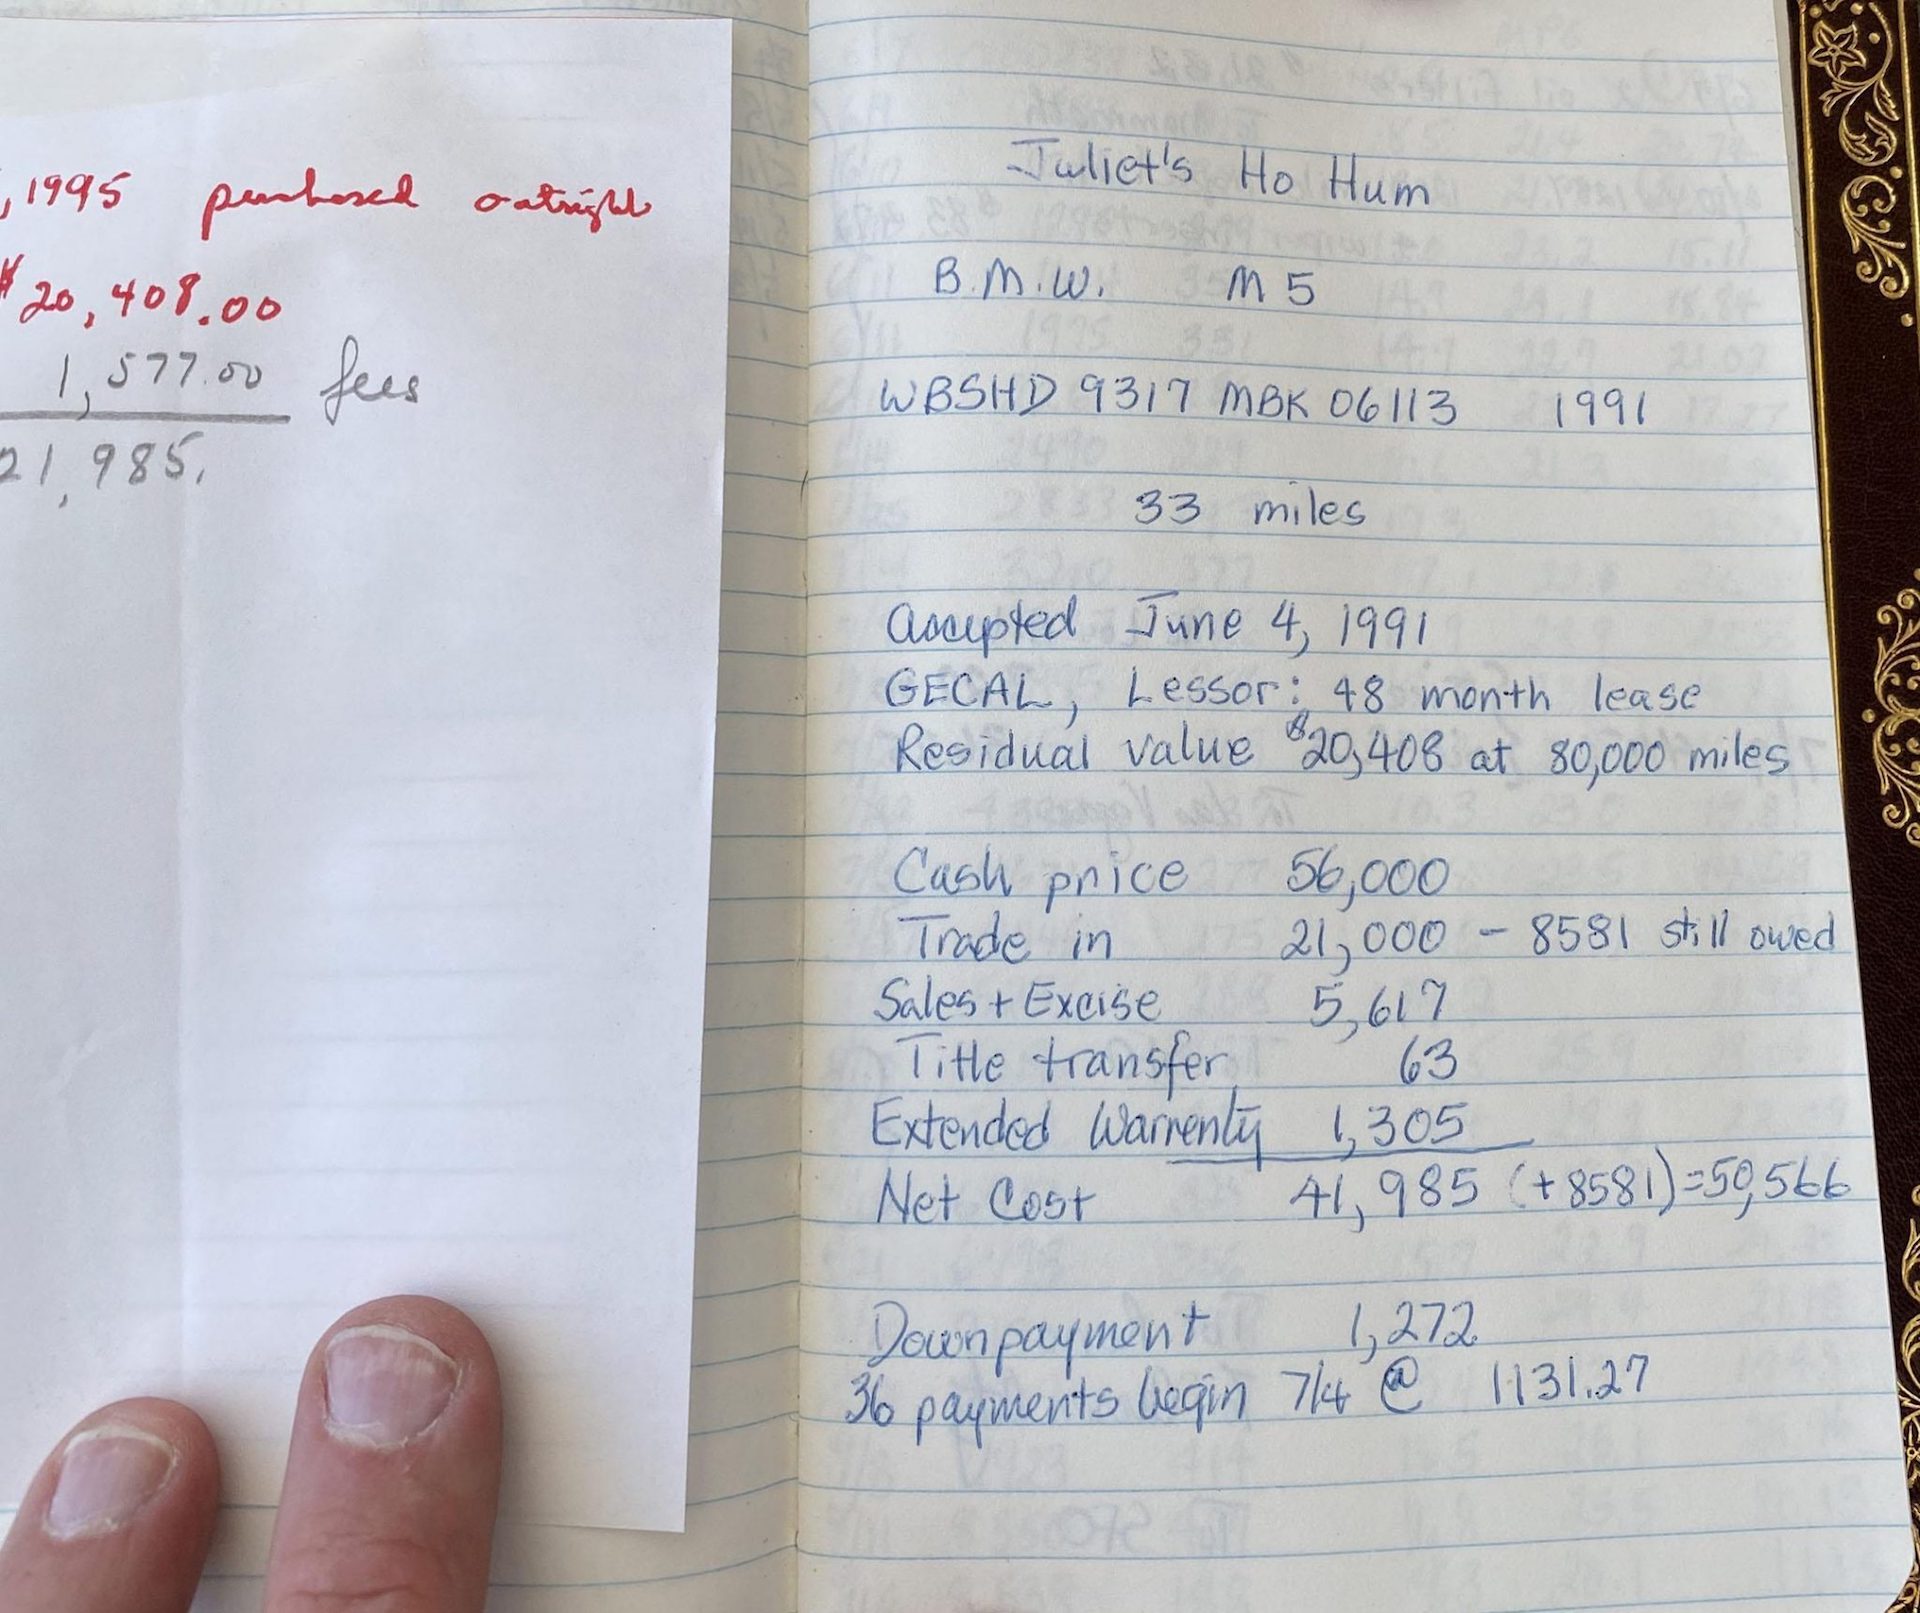 , 1995 purchased outright
$20,408.00
1,577.00 fees
21,985.
Juliet's Ho Hum
B.M.W. M5
WBSHD 9317 MBK 06113 1991
33 miles
Accepted June 4, 1991
GECAL, Lessor: 48 month lease
Residual value $20,408 at 80,000 miles
Cash price 56,000
Trade in 21,000 - 8581 still owed
Sales + Excise 5,617
Title transfer 63
Extended Warrenty 1,305
Net Cost 41,985 (+8581)=50,566
Downpayment 1,272
36 payments begin 7/4 @ 1131.27